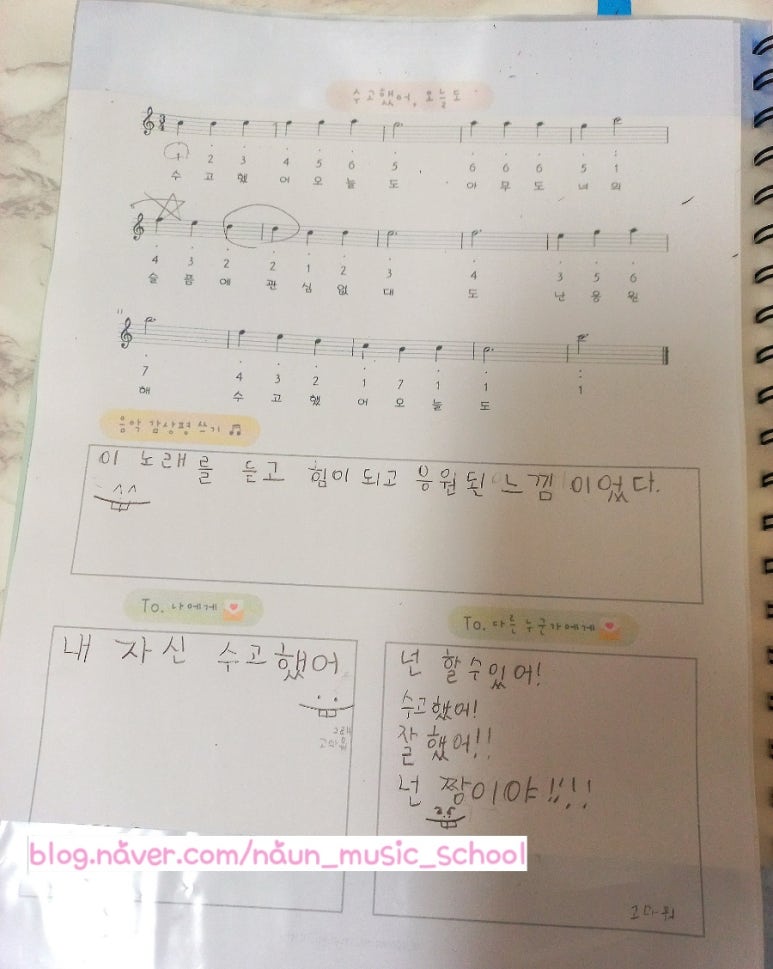 수고했어, 오늘도
3 4
1 2 3 4 5 6 5 6 6 6 5 1
수 고 했 어 오 늘 도 아 무 도 너 의
4 3 2 2 1 2 3 4 3 5 6
슬 픔 에 관 심 없 대 도 난 응 원
11
7 4 3 2 1 7 1 1 1
해 수 고 했 어 오 늘 도
음악 감상평 쓰기
이 노래를 듣고 힘이 되고 응원된 느낌이었다.
To. 나에게
내 자신 수고했어
고마워
To. 다른 누군가에게
넌 할 수 있어!
수고했어!
잘 했어!!
넌 짱이야!!!!
고마워
blog.naver.com/naun_music_school